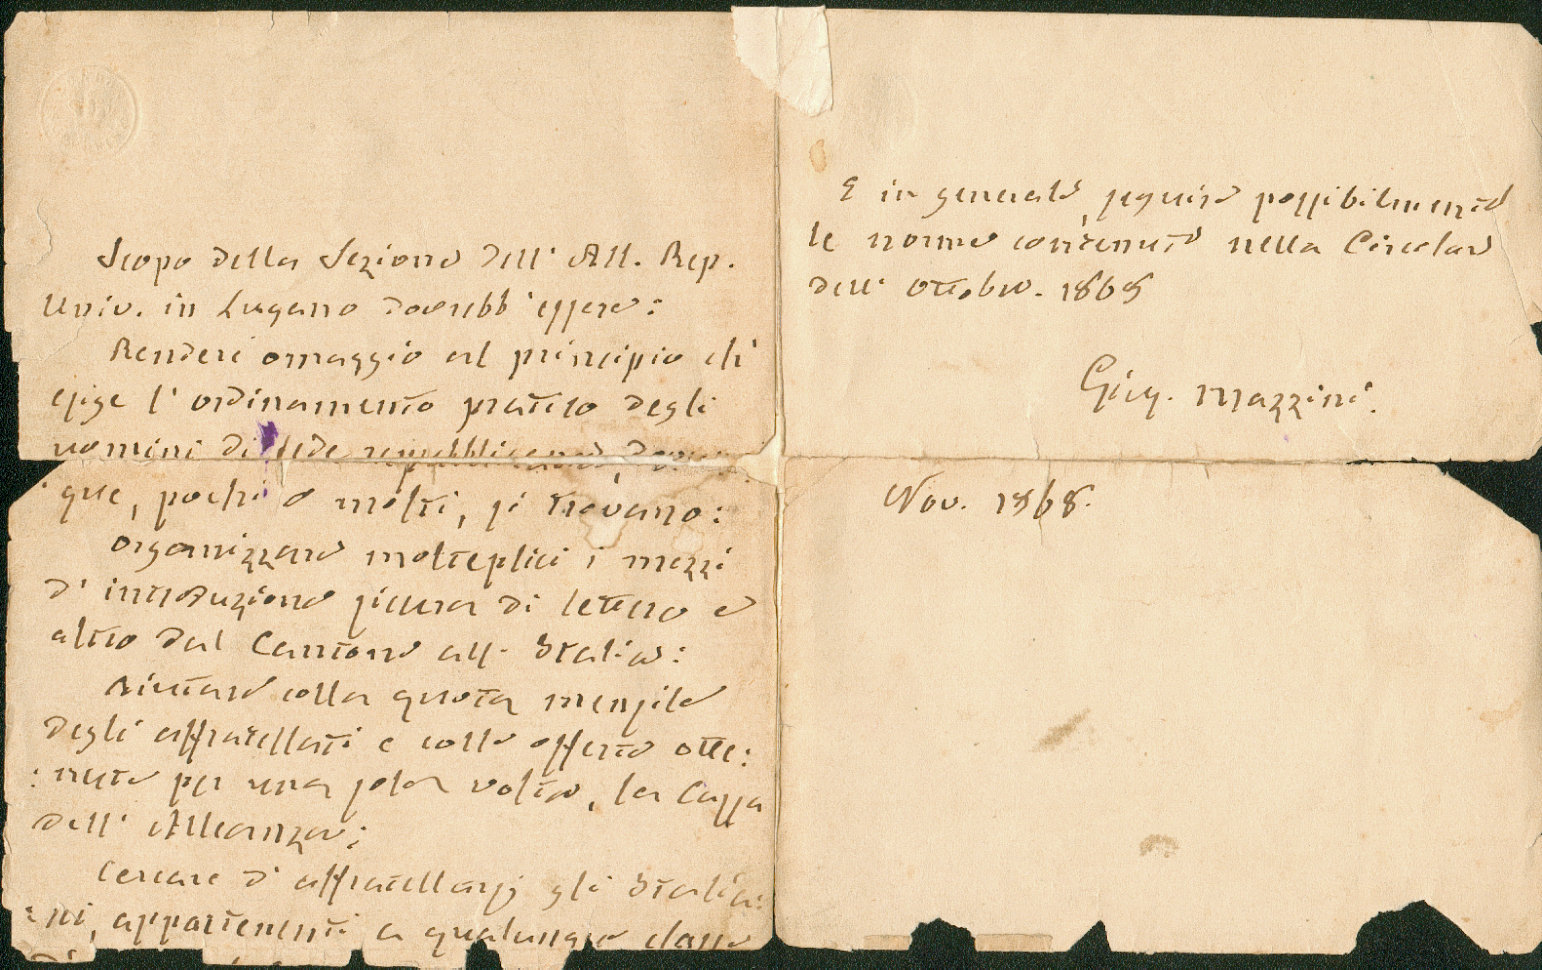 Scopo della Sezione dell' All. Rep.
Univ. in Lugano dovrebb'essere:
Rendere omaggio al principio ch'
esige l'ordinamento pratico degli
uomini di fede repubblicana,
que, pochi o molti, si trovano:
Organizzare molteplici i mezzi
d'introduzione sicura di lettere e
altro dal Cantone all' Italia:
Aiutare colla quota mensile
degli affratellati e colle offerte otte:
:nute per una sola volta, la Cassa
dell' Alleanza;
Cercare d'affratellarsi gli Italia:
:ni, appartenenti a qualunque classe
E in generale, seguire possibilmente
le norme contenute nella Circolare
dell' Ottobre. 1868
Gius. Mazzini.
Nov. 1868.